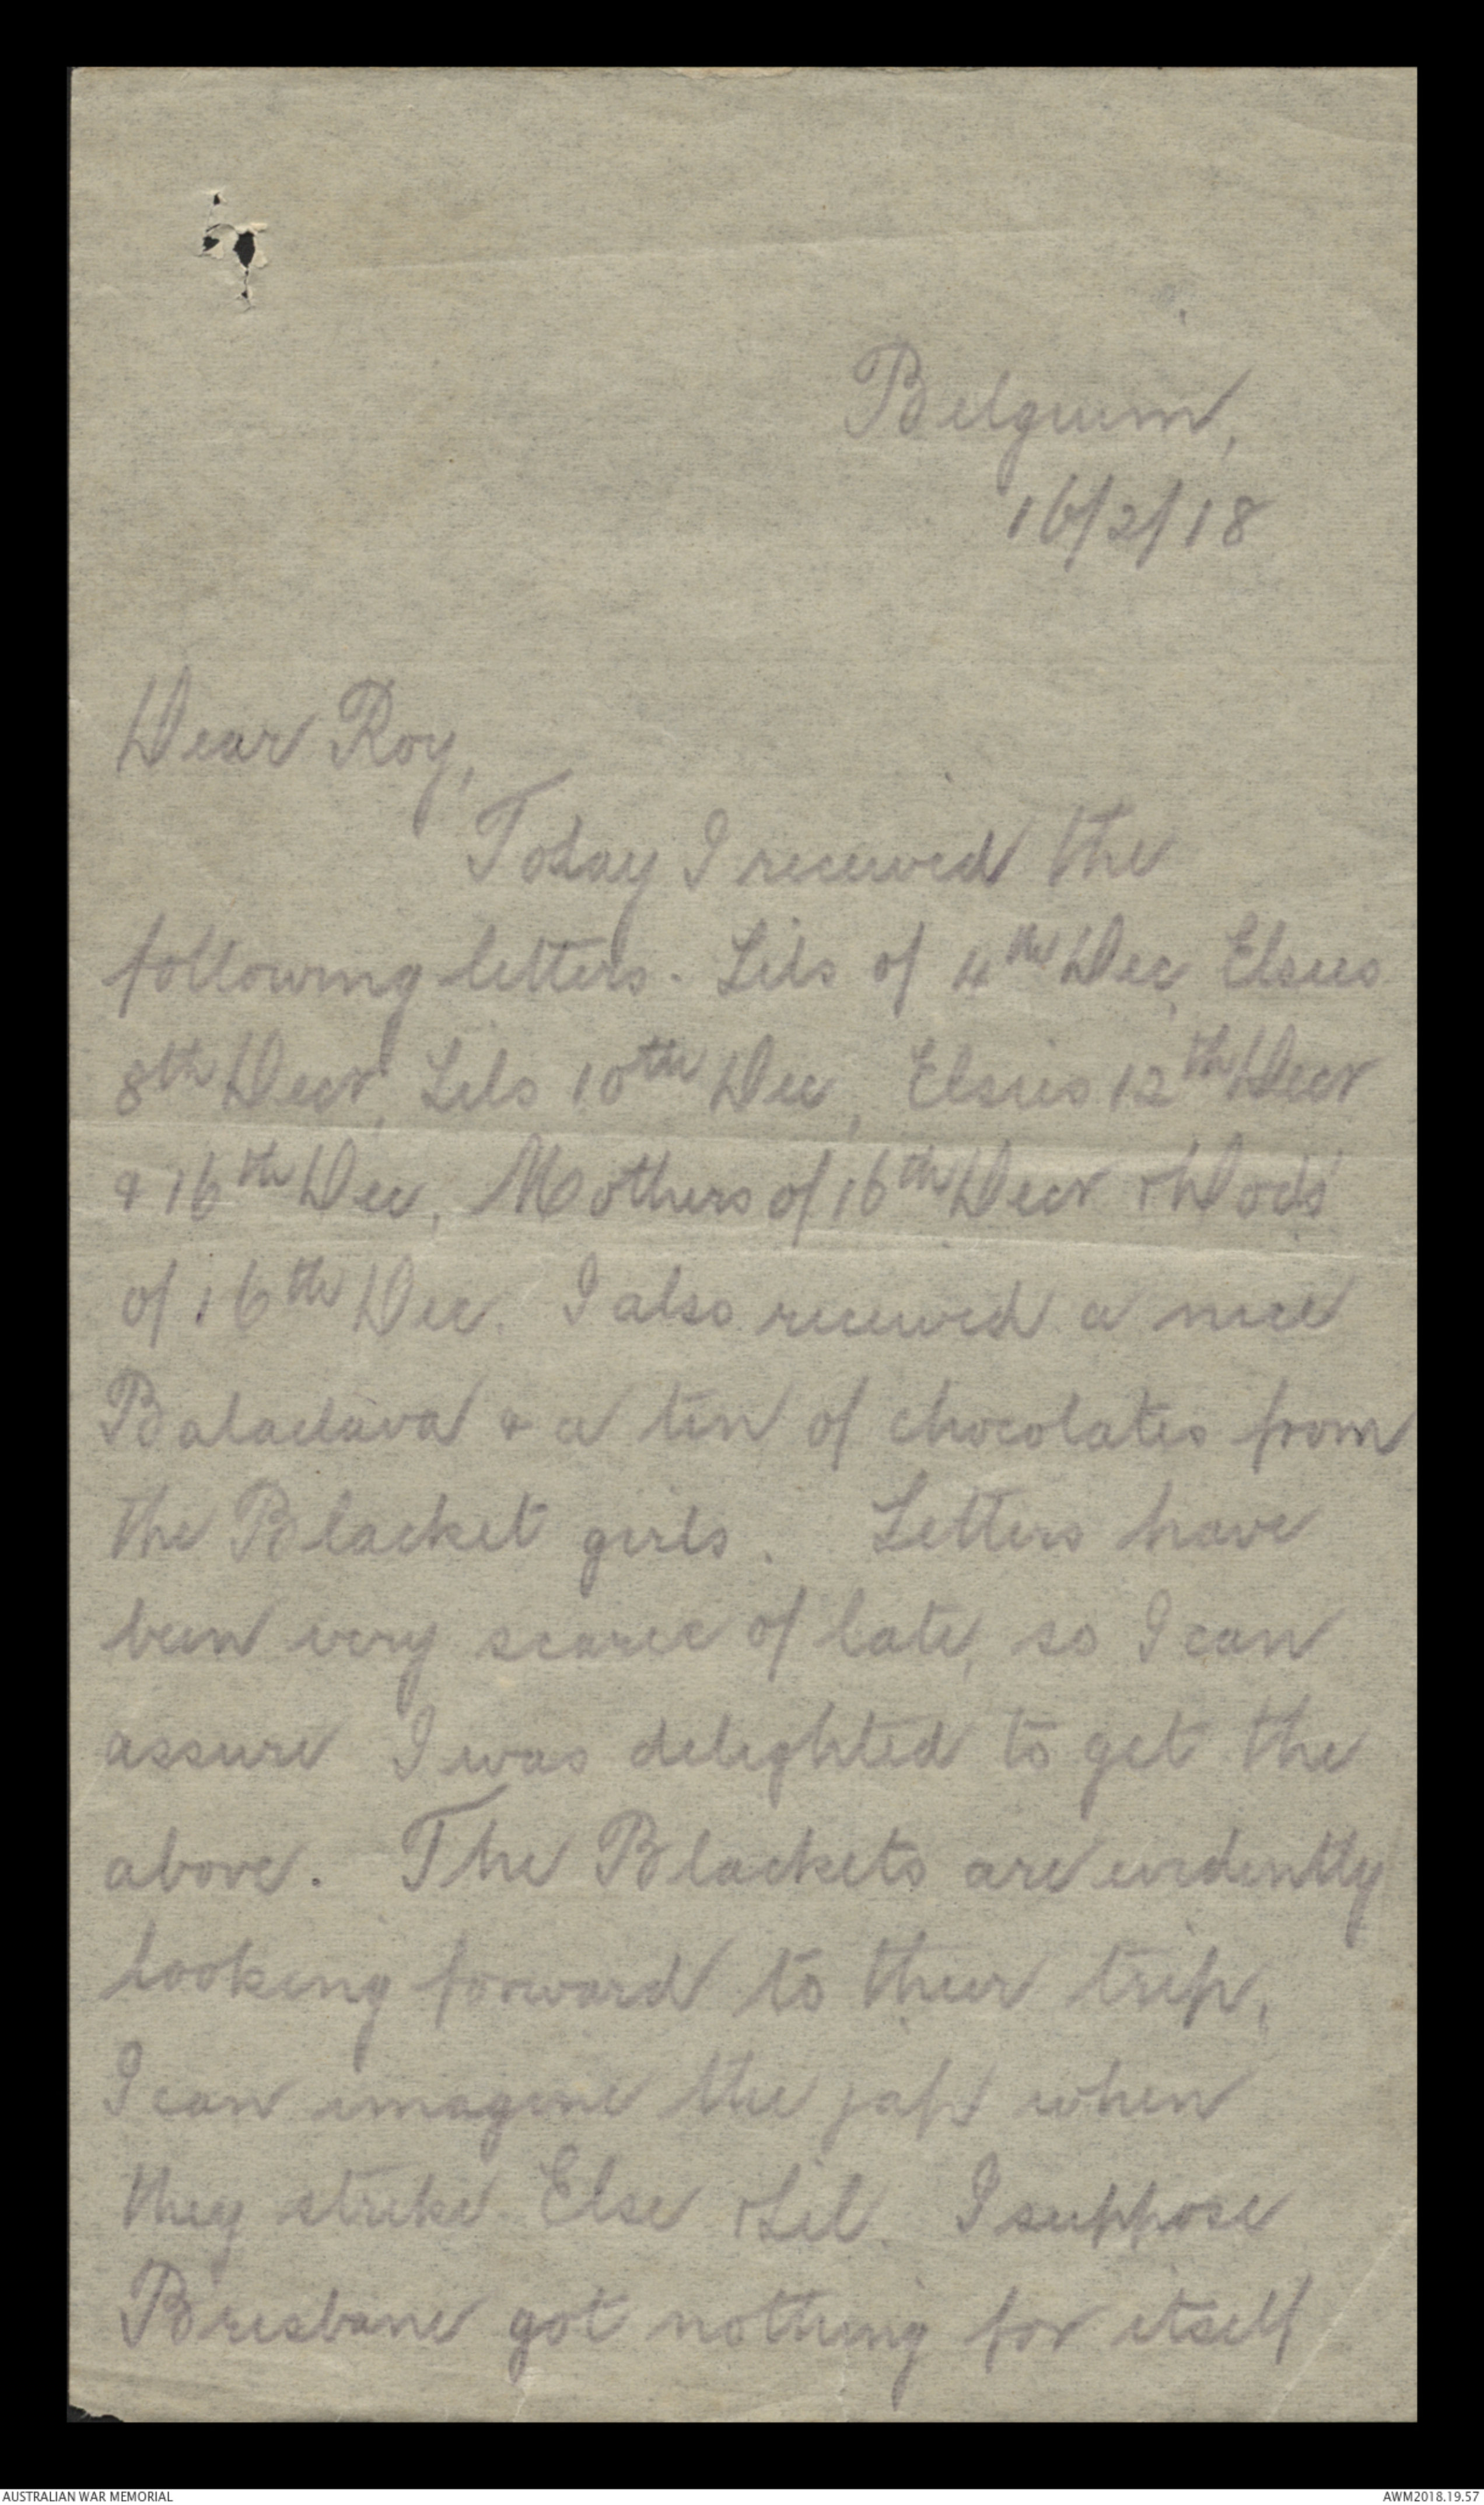 Belguim,
16/2/18
Dear Roy,
Today I received the
following letters. Lils of 4th Dec, Elsies
8th Decr, Lils 10th Dec, Elsies 12th Decr
& 16th Dec, Mothers of 16th Decr & Dods
of 16th Dec. I also received a nice
Balaclava & a tin of chocolates from
the Blacket girls. Letters have
been very scarce of late, so I can
assure I was delighted to get the
above. The Blackets are evidently
looking forward to their trip.
I can imagine the jap when
they strike Else & Lil. I suppose
Brisbane got nothing for itself
AUSTRALIAN WAR MEMORIAL
AWM2018.19.57